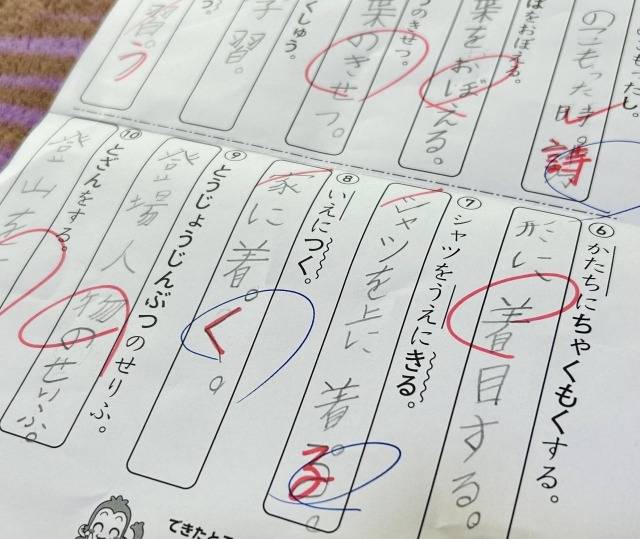 のこもった詩
詩
ばをおぼえる。
葉をおぼえる。
のきせつ。
葉のきせつ。
くしゅう。
学習。
習。
う
⑥かたちにちゃくもくする。
形に着目する。
⑦シャツをうえにきる。
シャツを上に着。
る
⑧いえにつく。
家に着。
く
⑨とうじょうじんぶつのせりふ。
登場人物のせりふ。
⑩とざんをする。
登山を
できたと